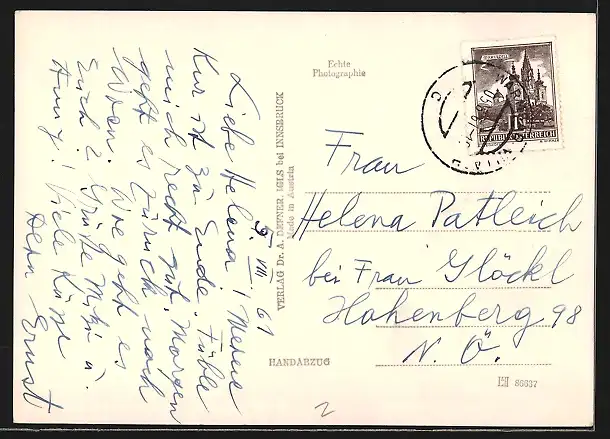 9. VIII 61
Liebe Helena! Meine
Kur ist zu Ende. Fühle
mich recht gut. Morgen
geht es zurück nach
Wien. Wie geht es
Euch 2 Grüße Mitzi u.
Viele Küsse
Dein Ernst
Echte
Photographie
VERLAG Dr. A. DEFNER, IGLS bei INNSBRUCK
Made in Austria
HANDABZUG
REPUBLIK ÖSTERREICH
Frau
Helena Patleich
bei Frau Glöckl
Hohenberg 98
N. Ö.
86637
2